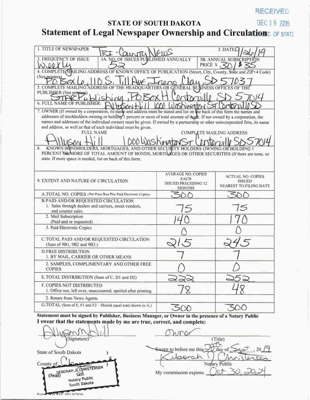 RECEIVED
DEC 18 2019
STATE OF SOUTH DAKOTA
Statement of Legal Newspaper Ownership and Circulation
SEC. OF STATE
1. TITLE OF NEWSPAPER
Tri-County News
2. DATE
3. FREQUENCY OF ISSUE
Weekly
3A. NO. OF ISSUES PUBLISHED ANNUALLY
52
3B. ANNUAL SUBSCRIPTION
PRICE $ 30/$35
4. COMPLETE MAILING ADDRESS OF KNOWN OFFICE OF PUBLICATION (Street, City, County, State and ZIP+4 Code)
(Not printers)
PO Box 6, 110 S. Till Ave Irene Clay SD 57037
5. COMPLETE MAILING ADDRESS OF THE HEADQUARTERS OR GENERAL BUSINESS OFFICES OF THE
Publishing, PO Box H Centerville SD 57014
6. FULL NAME OF PUBLISHER
Allyson Hill 1000 Washington St Centerville SD
7. OWNER (If owned by a corporation, its name and address must be stated and list on back of this form the names and
addresses of stockholders owning or holding 1 percent or more of total amount of stock. If not owned by a corporation, the
names and addresses of the individual owners must be given. If owned by a partnership or other unincorporated firm, its name
and address, as well as that of each individual must be given.
FULL NAME
COMPLETE MAILING ADDRESS
Allyson Hill
1000 Washington St Centerville SD 57014
8. KNOWN BONDHOLDERS, MORTGAGES, AND OTHER SECURITY HOLDERS OWNING OR HOLDING 1
PERCENT OR MORE OF TOTAL AMOUNT OF BONDS, MORTGAGES OR OTHER SECURITIES (If there are none, so
state. If more space is needed, list on back of this form.
9. EXTENT AND NATURE OF CIRCULATION
AVERAGE NO. COPIES
EACH
ISSUED PRECEEDING 12
MONTHS
ACTUAL NO. COPIES
ISSUED
NEAREST TO FILING DATE
A. TOTAL NO. COPIES (Net Press Run Plus Paid Electronic Copies)
300
300
B. PAID AND/OR REQUESTED CIRCULATION
1. Sales through dealers and carriers, street vendors,
and counter sales.
75
75
2. Mail Subscription
(Paid and/or requested)
140
170
3. Paid Electronic Copies
0
0
C. TOTAL PAID AND/OR REQUESTED CIRCULATION
(Sum of 9B1, 9B2 and 9B3.)
215
245
D. FREE DISTRIBUTION
1. BY MAIL, CARRIER OR OTHER MEANS
7
7
2. SAMPLES, COMPLIMENTARY AND OTHER FREE
COPIES
0
0
E. TOTAL DISTRIBUTION (Sum of C, D1 and D2)
222
252
F. COPIES NOT DISTRIBUTED
1. Office use, left over, unaccounted, spoiled after printing
78
48
2. Return from News Agents
G. TOTAL (Sum of E, F1 and F2 - Should equal total shown in A.)
300
300
Statement must be signed by Publisher, Business Manager, or Owner in the presence of a Notary Public
I swear that the statements made by me are true, correct, and complete:
Allyson Hill
(Signature)
Owner
(Title)
State of South Dakota
Sworn to before me this
County of
Deborah J Christensen
My commission expires: Oct 30, 2024
DEBORAH J CHRISTENSEN
Notary Public
South Dakota